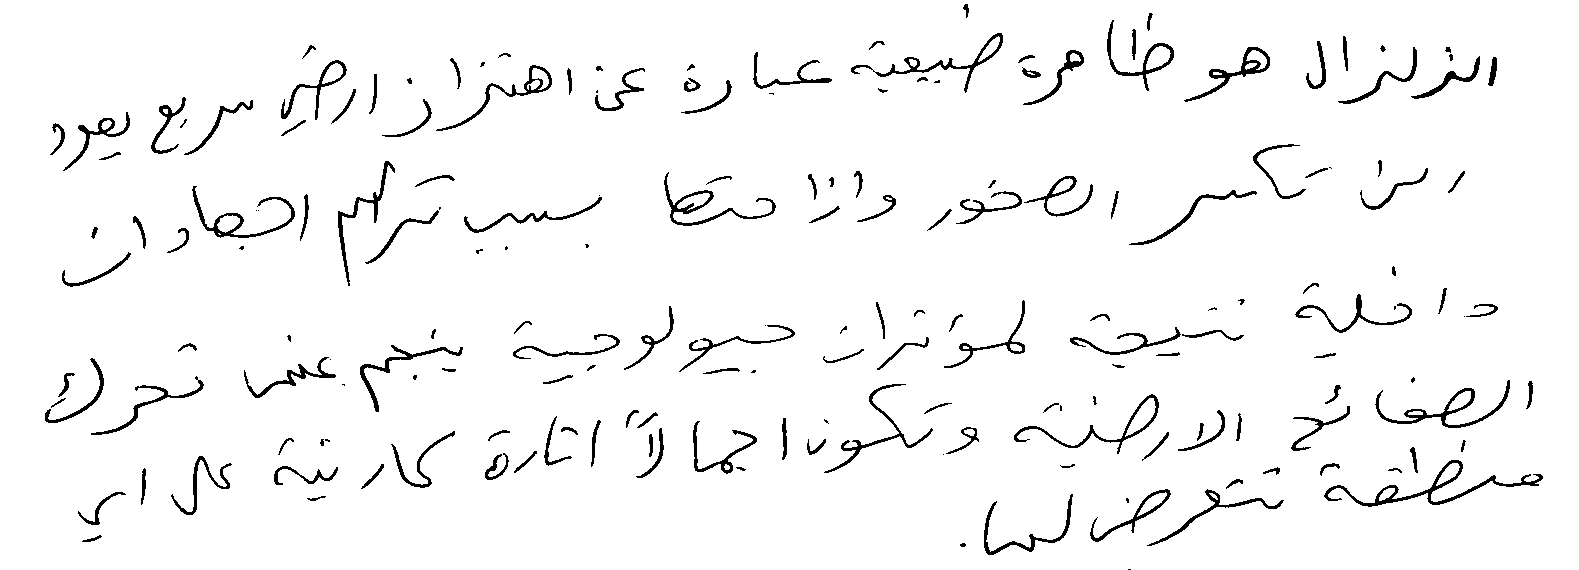 الزلزال هو ظاهرة طبيعية عبارة عن اهتزاز ارضي سريع يعود
الى تكسر الصخور وازاحتها بسبب تراكم اجهادات
داخلية نتيجة لمؤثرات جيولوجية ينجم عنها تحرك
الصفائح الارضية وتكون اجمالاً اثارة كارثية على اي
منطقة تتعرض لها.